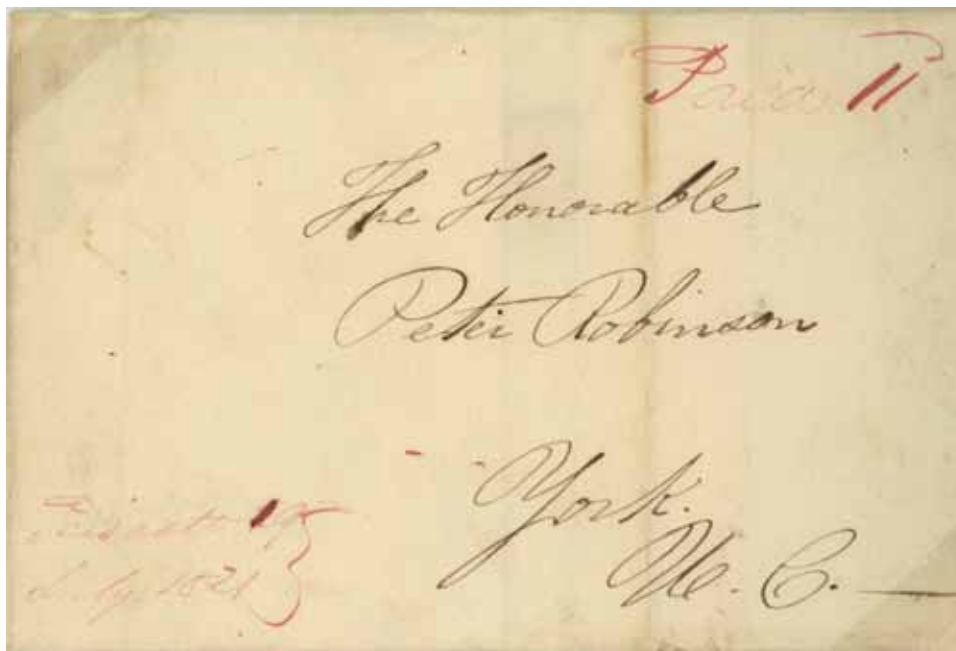 Paid 11
The Honorable
Peter Robinson
York.
U. C.
19
July 1831